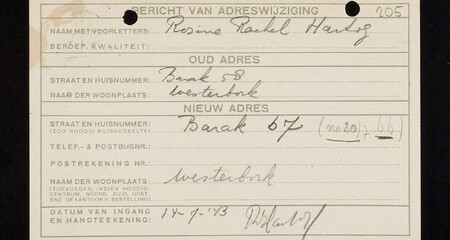 BERICHT VAN ADRESWIJZIGING 205
NAAM MET VOORLETTERS: Rosine Rachel Hartog
BEROEP, KWALITEIT:
OUD ADRES
STRAAT EN HUISNUMMER: Barak 58
NAAM DER WOONPLAATS: Westerbork
NIEUW ADRES
STRAAT EN HUISNUMMER: Barak 67
(ZOO NOODIG HUISGEDEELTE)
TELEF.- & POSTBUSNR.:
POSTREKENING NR.:
NAAM DER WOONPLAATS: Westerbork
(TOEVOEGEN, INDIEN NOODIG,
CENTRUM, NOORD, ZUID, OOST,
ENZ. OF KANTOOR V. BESTELLING)
DATUM VAN INGANG 14-7-'43
EN HANDTEEKENING: